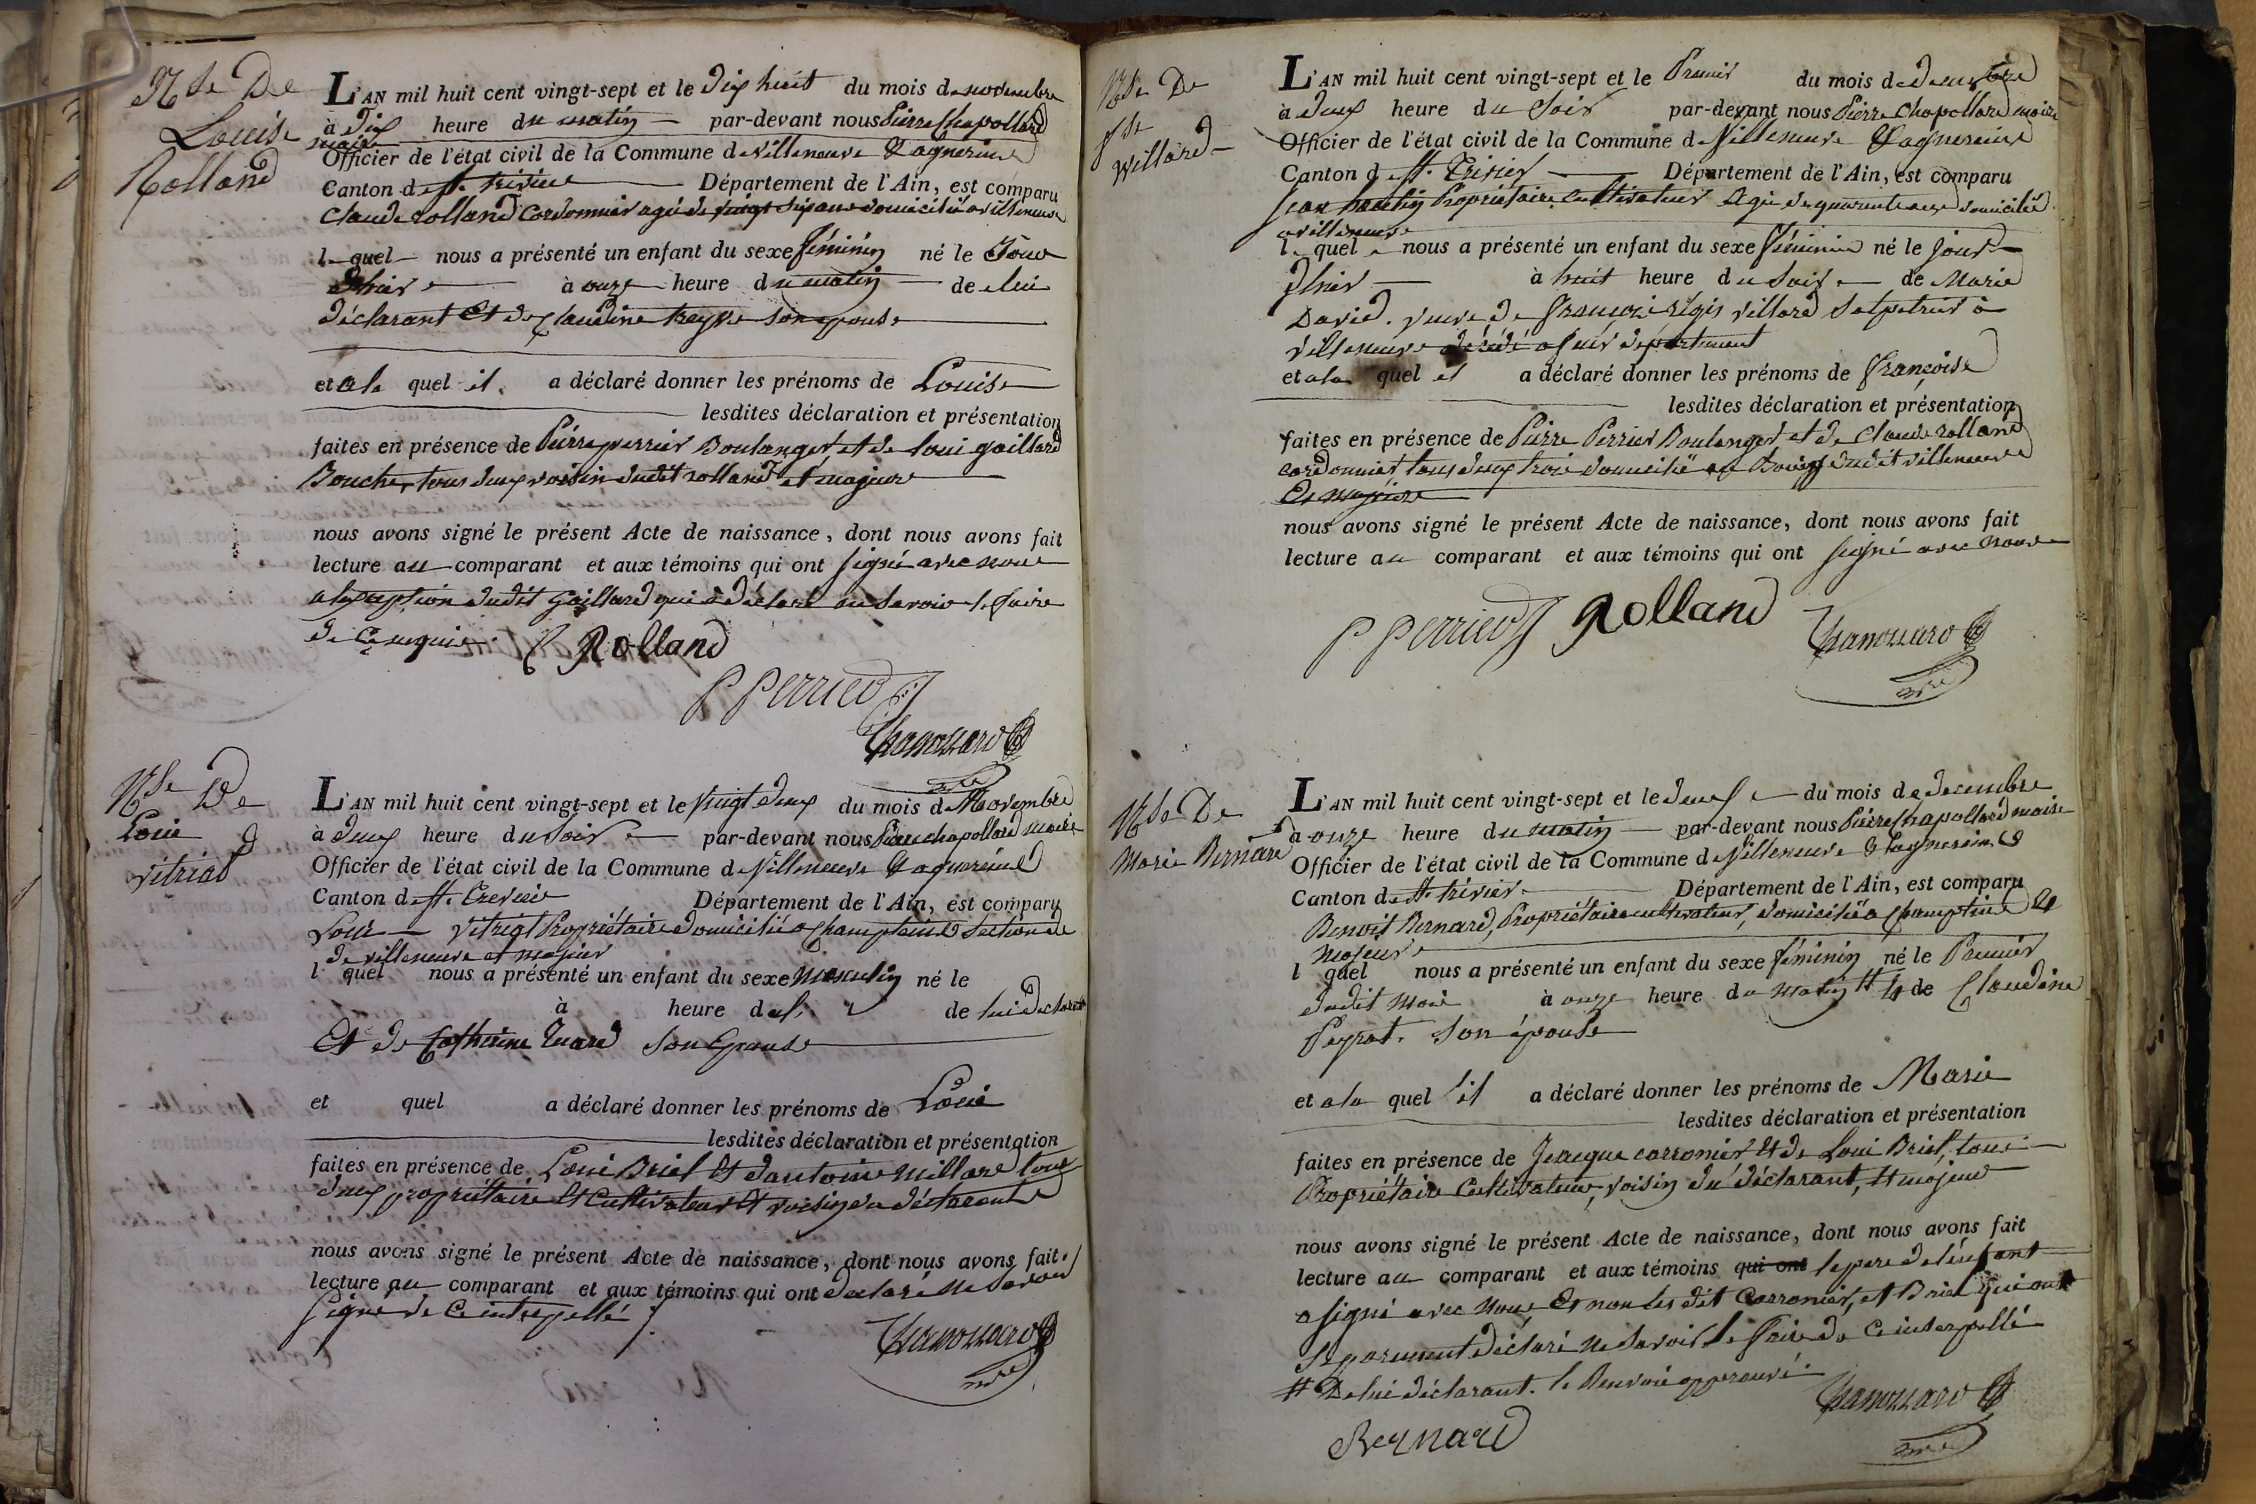 Nce De
Louise
Rolland
L'AN mil huit cent vingt-sept et le dix huit du mois de novembre
à dix heure du matin par-devant nous Pierre Chapollard
maire
Officier de l'état civil de la Commune de villeneuve &agnereins
Canton de st. trivier Département de l'Ain, est comparu
Claude rolland Cordonnier agé de vingt six ans domicilié a villeneuve
le quel nous a présenté un enfant du sexe féminin né le Jour
d'hier à onze heure du matin de lui
déclarant Et de Claudine treyve son epouse
et a la quel il a déclaré donner les prénoms de Louise
lesdites déclaration et présentation
faites en présence de Pierre perrier Boulanger et de loui gaillard
Boucher tous deux voisin dudit rolland et majeur
nous avons signé le présent Acte de naissance, dont nous avons fait
lecture au comparant et aux témoins qui ont signé avec nous
a lexception dudit Gaillard qui a déclaré ne savoir le faire
de ce requis. C Rolland
P Perrier
Nce De
Loui
vitriat
L'AN mil huit cent vingt-sept et le vingt deux du mois de Novembre
à deux heure du soir par-devant nous Pierre chapollard maire
Officier de l'état civil de la Commune de Villeneuve &agnereins
Canton de st. Trevier Département de l'Ain, est comparu
Loui vitriat Propriétaire domicilié a Champteins Section de
de villeneuve et majeur
l quel nous a présenté un enfant du sexe masculin né le
à heure du de lui déclarant
Et de Catherine son Epouse
et quel a déclaré donner les prénoms de Loui
lesdites déclaration et présentation
faites en présence de Loui Briel Et dantoine Millare tous
deux propriétaire Et Cultivateur Et voisin du déclarant
nous avons signé le présent Acte de naissance, dont nous avons fait
lecture au comparant et aux témoins qui ont declaré ne savoir
signer de ce interpellé
Nce De
fse
Willard
L'AN mil huit cent vingt-sept et le Premier du mois de decembre
à deux heure du soir par-devant nous Pierre Chapollard maire
Officier de l'état civil de la Commune de Villeneuve &agnereins
Canton de st. Trivier Département de l'Ain, est comparu
Jean Propriétaire Cultivateur agé de quarante ans domicilié
a villeneuve
l quel nous a présenté un enfant du sexe féminin né le jour
d'hier à huit heure du soir de Marie
David. veuve de françoi régis villard Salpetrier à
villeneuve décédé département
et a la quel il a déclaré donner les prénoms de françoise
lesdites déclaration et présentation
faites en présence de Pierre Perrier Boulanger et de Claude rolland
cordonnier tous deux trois domicilié au Bourg dudit villeneuve
Et majeur
nous avons signé le présent Acte de naissance, dont nous avons fait
lecture au comparant et aux témoins qui ont signé avec nous
P Perrier Rolland
Nce De
Marie Bernard
L'AN mil huit cent vingt-sept et le deux du mois de decembre
à onze heure du matin par-devant nous Pierre Chapollard maire
Officier de l'état civil de la Commune de Villeneuve &agnereins
Canton de st. trévier Département de l'Ain, est comparu
Benoit Bernard, Propriétaire cultivateur, domicilié a Champtein Et
majeur
l quel nous a présenté un enfant du sexe féminin né le Premier
dudit moi à onze heure du matin # de Claudine
Peyrat. son épouse
et a la quel il a déclaré donner les prénoms de Marie
lesdites déclaration et présentation
faites en présence de Jeacque corronier Et de Loui Briel, tous
Propriétaire Cultivateur, voisin du déclarant, et majeur
nous avons signé le présent Acte de naissance, dont nous avons fait
lecture au comparant et aux témoins qui ont le pere de lenfant
a signé avec nous Et non les dit Corronier, et Briel qui ont
séparement déclaré ne savoir le faire de ce interpellé
# De lui déclarant. le Renvoi approuvé
Bernard